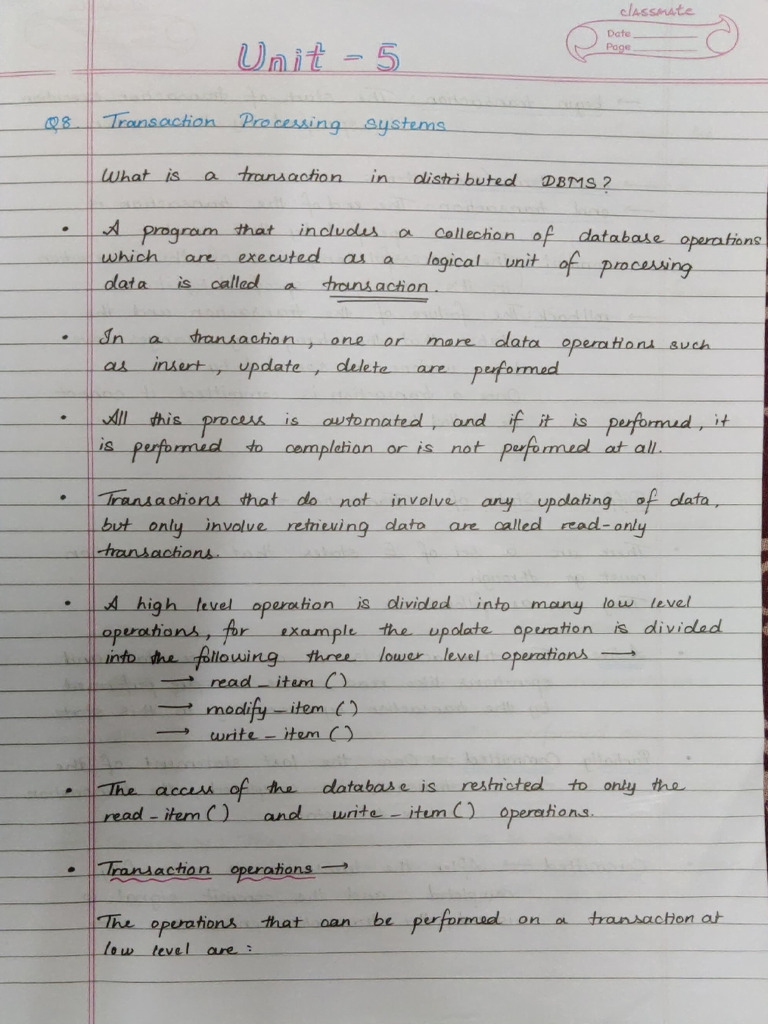 classmate
Date
Page
Unit - 5
Q8. Transaction Processing systems
What is a transaction in distributed DBMS?
• A program that includes a collection of database operations
which are executed as a logical unit of processing
data is called a transaction.
• In a transaction, one or more data operations such
as insert, update, delete are performed
• All this process is automated, and if it is performed, it
is performed to completion or is not performed at all.
• Transactions that do not involve any updating of data,
but only involve retrieving data are called read-only
transactions.
• A high level operation is divided into many low level
operations, for example the update operation is divided
into the following three lower level operations →
→ read-item ()
→ modify-item ()
→ write-item ()
• The access of the database is restricted to only the
read-item() and write-item() operations.
• Transaction operations →
The operations that can be performed on a transaction at
low level are :